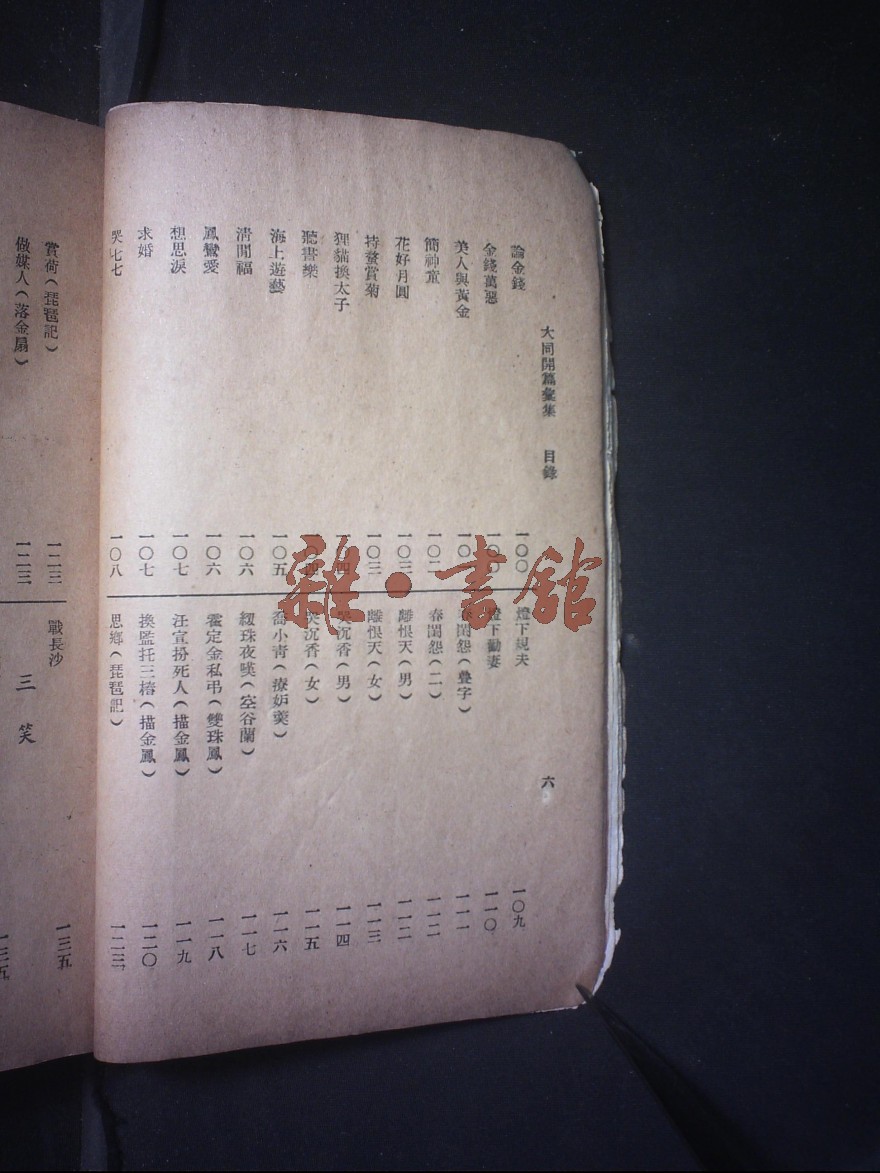 大同開篇彙集 目錄 六
論金錢 一〇〇
金錢萬惡
美人與黃金
簡神童 一〇二
花好月圓 一〇三
持螯賞菊 一〇三
狸貓換太子
聽書樂
海上遊藝 一〇五
清閒福 一〇六
鳳鸞愛 一〇六
想思淚 一〇七
求婚 一〇七
哭七七 一〇八
燈下規夫 一〇九
燈下勸妻 一一〇
春閨怨(疊字) 一一一
春閨怨(二) 一一二
離恨天(男) 一一二
離恨天(女) 一一三
哭沉香(男) 一一四
哭沉香(女) 一一五
喬小青(療妒羹) 一一六
紉珠夜嘆(空谷蘭) 一一七
霍定金私弔(雙珠鳳) 一一八
汪宣扮死人(描金鳳) 一一九
換監托三樁(描金鳳) 一二〇
思鄉(琵琶記) 一二二
賞荷(琵琶記) 一二三
做媒人(落金扇) 一二三
戰長沙 一三五
三笑
一三五
雜·書館